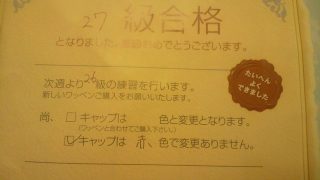 27 級合格
となりました。おめでとうございます。
次週より26級の練習を行います。
新しいワッペンご購入をお願いいたします。
たいへん
よく
できました
尚、□キャップは 色と変更となります。
(ワッペンと合わせてご購入下さい)
☑キャップは 赤、色で変更ありません。